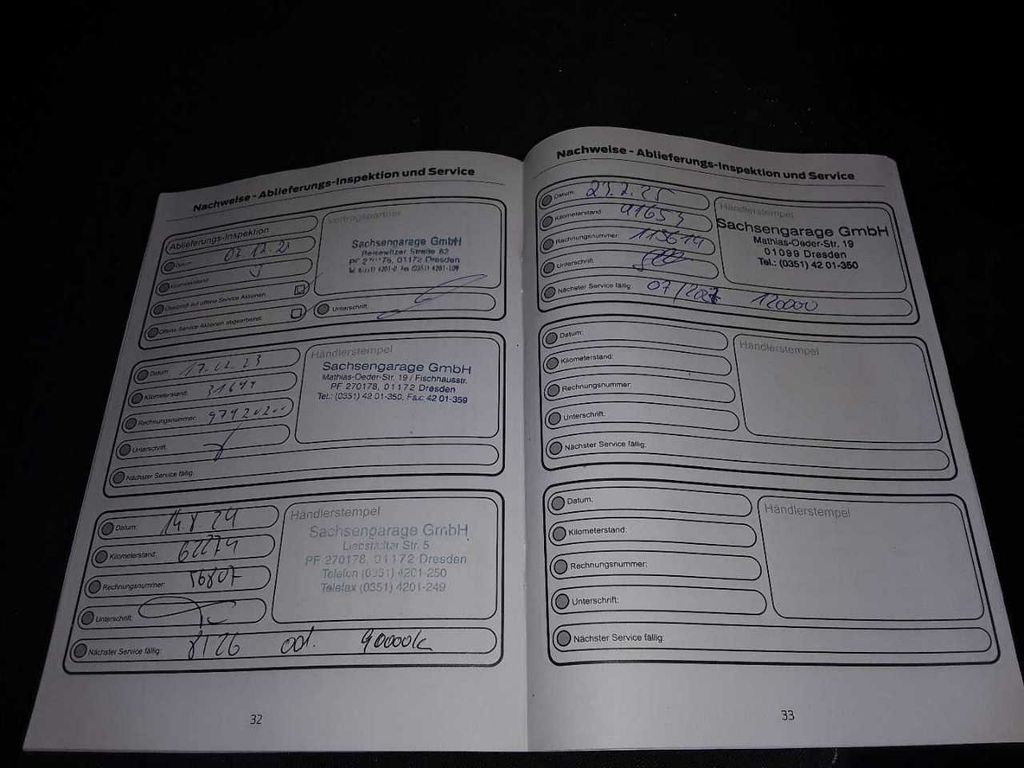 Nachweise - Ablieferungs-Inspektion und Service
Ablieferungs-Inspektion
Datum:
Kilometerstand:
Überprüft auf offene Service Aktionen:
Offene Service Aktionen abgearbeitet:
Vertragspartner
Sachsengarage GmbH
PF 270178, 01172 Dresden
Unterschrift:
Datum:
Kilometerstand:
Rechnungsnummer:
Unterschrift:
Nächster Service fällig:
Händlerstempel
Sachsengarage GmbH
Mathias-Oeder-Str. 19 / Fischhausstr.
PF 270178, 01172 Dresden
Tel.: (0351) 42 01-350, Fax: 42 01-359
Datum: 14.8.24
Kilometerstand: 62274
Rechnungsnummer: 56807
Unterschrift:
Nächster Service fällig: 8/26 od. 90000k
Händlerstempel
Sachsengarage GmbH
Liebstädter Str. 5
PF 270178, 01172 Dresden
Telefon (0351) 4201-250
Telefax (0351) 4201-249
32
Nachweise - Ablieferungs-Inspektion und Service
Datum:
Kilometerstand: 91653
Rechnungsnummer: 115614
Unterschrift:
Nächster Service fällig: 07/2027 120000
Händlerstempel
Sachsengarage GmbH
Mathias-Oeder-Str. 19
01099 Dresden
Tel.: (0351) 42 01-350
Datum:
Kilometerstand:
Rechnungsnummer:
Unterschrift:
Nächster Service fällig:
Händlerstempel
Datum:
Kilometerstand:
Rechnungsnummer:
Unterschrift:
Nächster Service fällig:
Händlerstempel
33